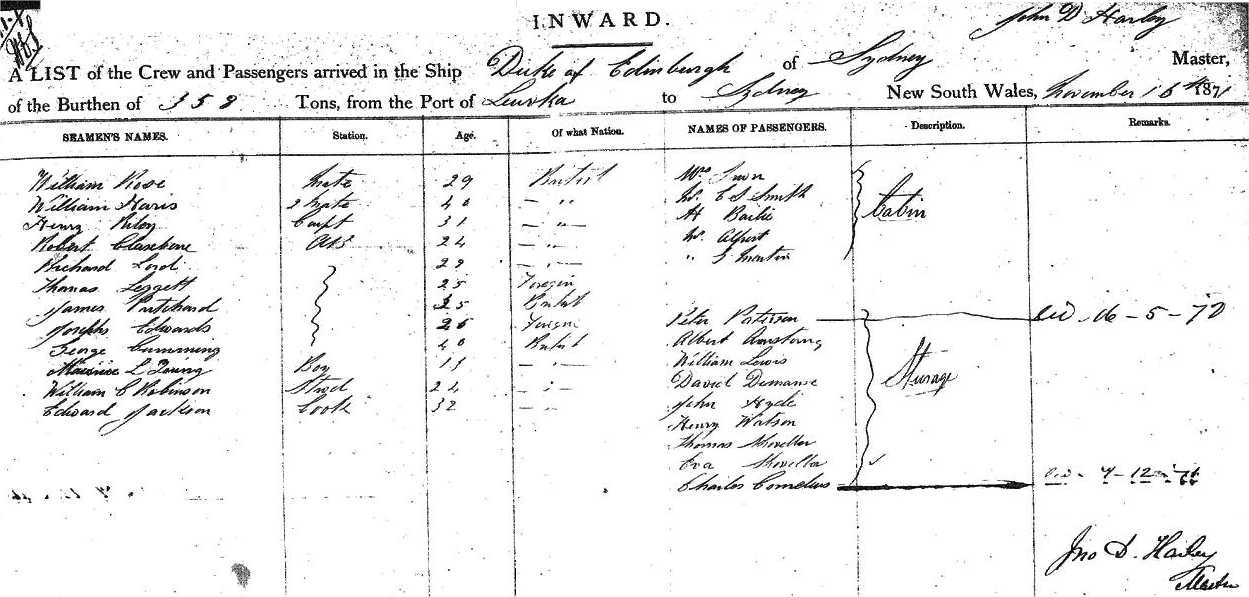 INWARD.
John D Harley
A LIST of the Crew and Passengers arrived in the Ship Duke of Edinburgh of Sydney Master,
of the Burthen of 358 Tons, from the Port of Levuka to Sydney New South Wales, November 16th 1871
SEAMEN'S NAMES. Station. Age. Of what Nation. NAMES OF PASSENGERS. Description. Remarks.
William Rose Mate 29 British
William Haris 2 Mate 40 - " -
Henry Riley Carpt 31 - " -
Robert AB 24 - " -
Richard Lord 29 - " -
Thomas Leggett 25 Foregin
James Pritchard 25 British
Josephs Edwards 26 Foregin
George Cumming 40 British
L Young Boy - " -
William C Robinson Stwd 24 - " -
Edward Jackson Cook 32 - " -
Mrs
Mr. E S Smith
H
Mr. Albert
" S Martin
Cabin
Peter Paterson 16-5-72
Albert Armstrong
William Lewis
David
John Hyde
Henry Watson
Thomas Shoveller
Eva Shovella
Charles Cornelius 7-12
Sturage
Jno D. Harley
Master